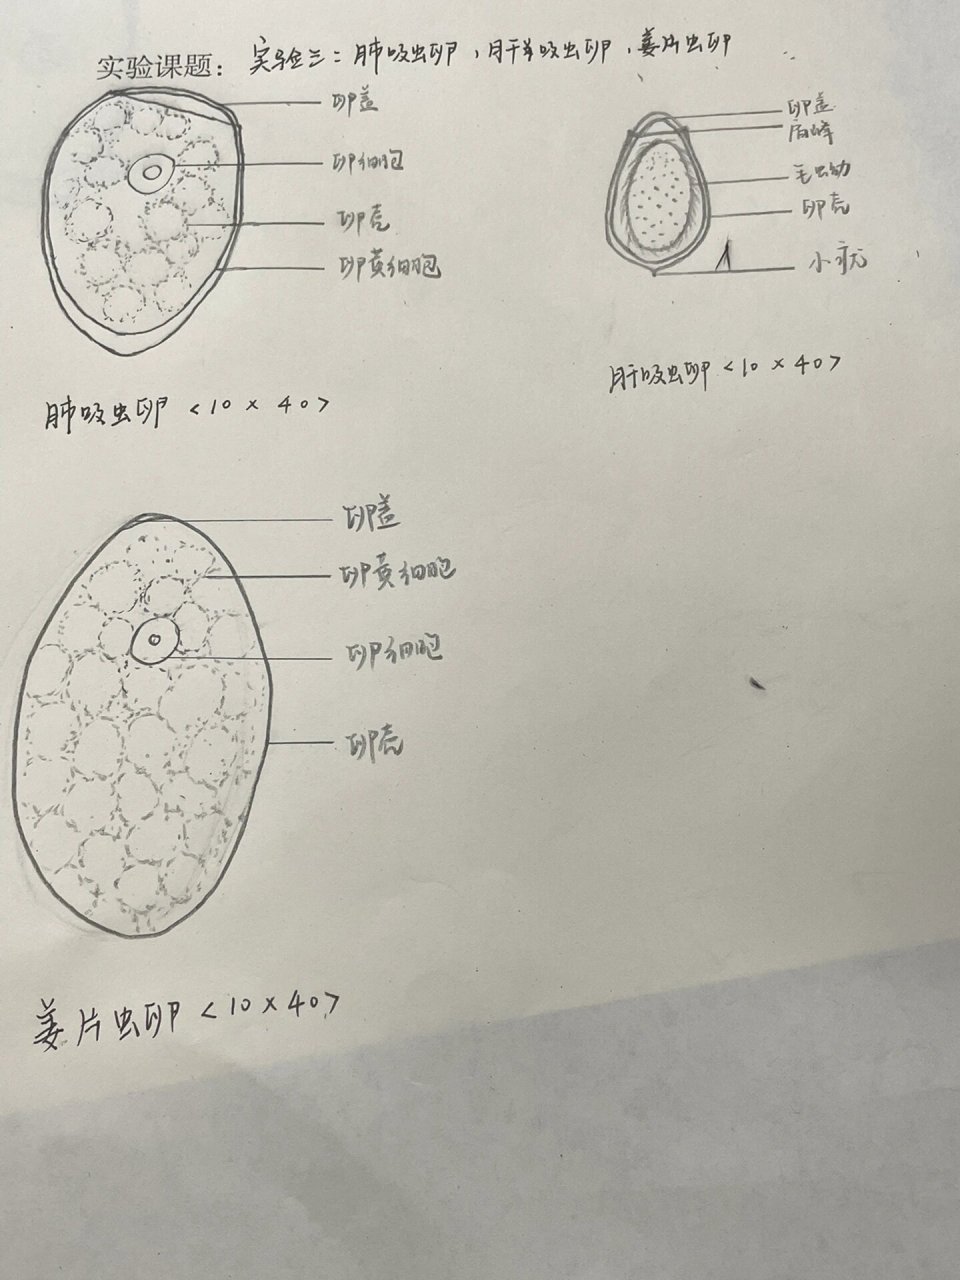 实验课题：实验三：肺吸虫卵，肝吸虫卵，姜片虫卵
卵盖
卵细胞
卵壳
卵黄细胞
肺吸虫卵 <10×40>
卵盖
肩峰
毛虫幼
卵壳
小疣
肝吸虫卵 <10×40>
卵盖
卵黄细胞
卵细胞
卵壳
姜片虫卵 <10×40>